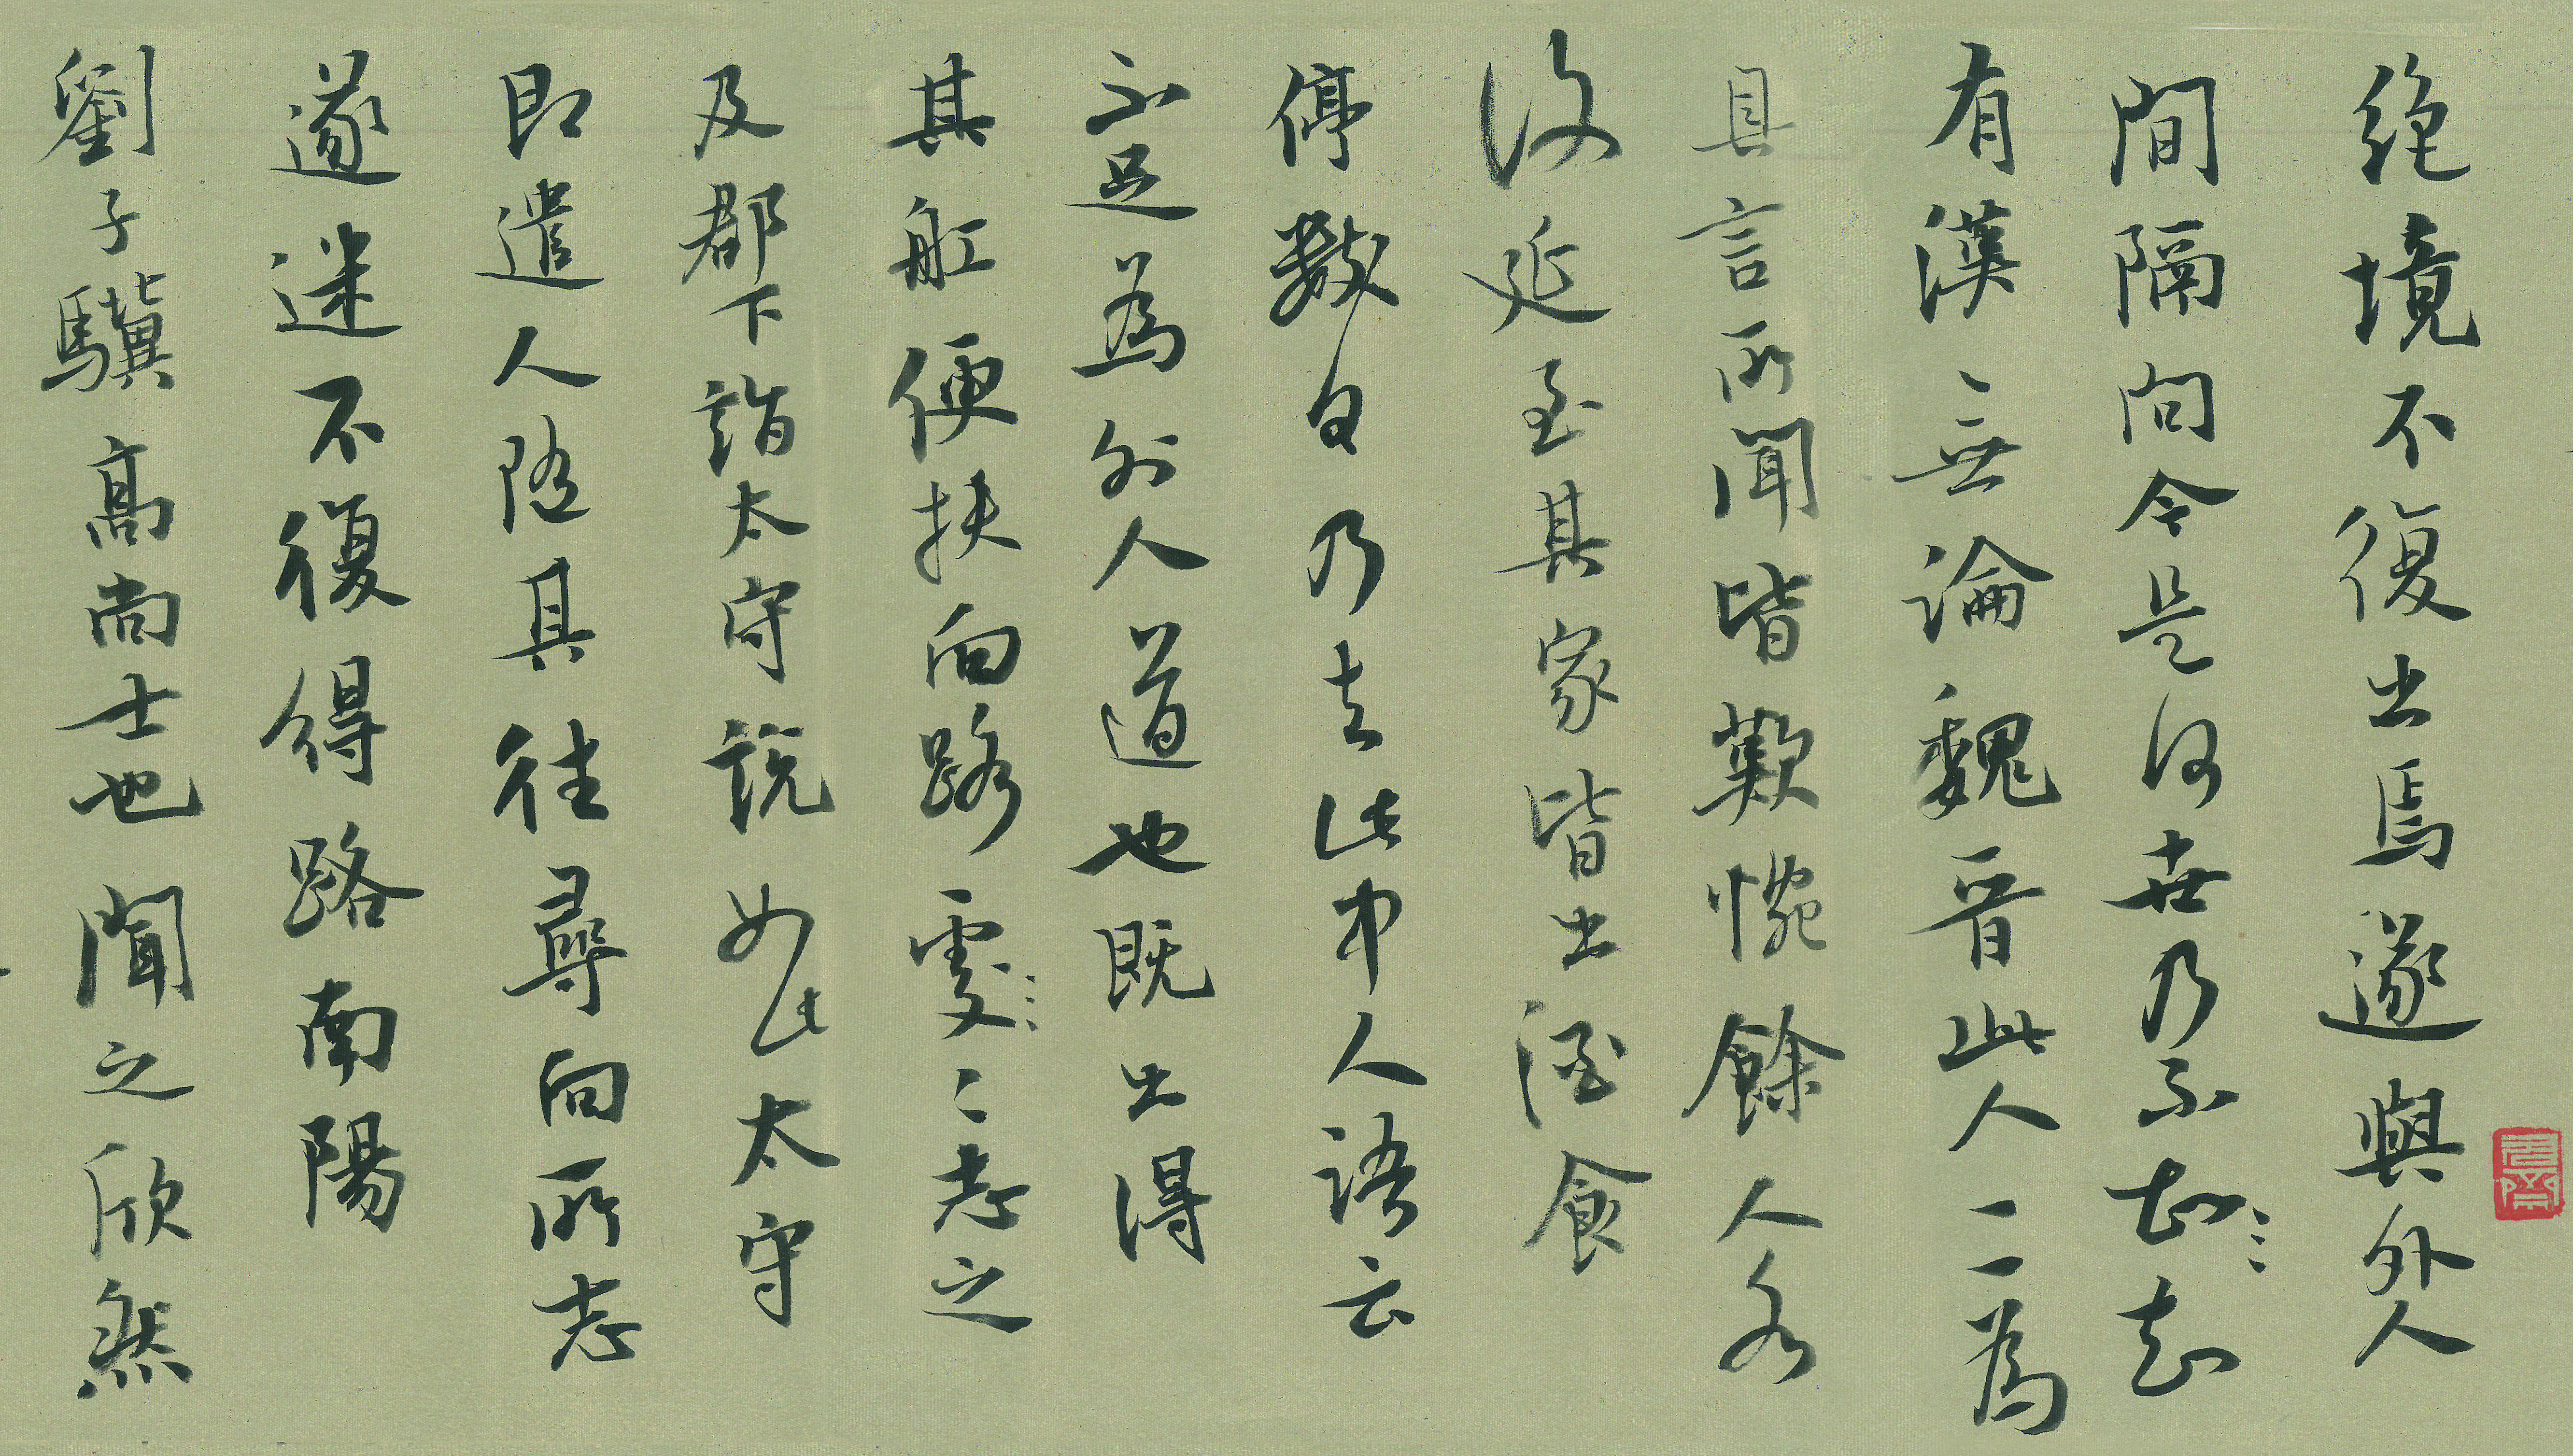 絶境不復出焉遂與外人
間隔問今是何世乃不知知
有漢無論魏晉此人一一為
具言所聞皆歎惋餘人各
復延至其家皆出酒食
停數日乃去此中人語云
不足為外人道也既出得
其舡便扶向路處〻志之
及郡下詣太守說如此太守
即遣人隨其往尋向所志
遂迷不復得路南陽
劉子驥高尚士也聞之欣然